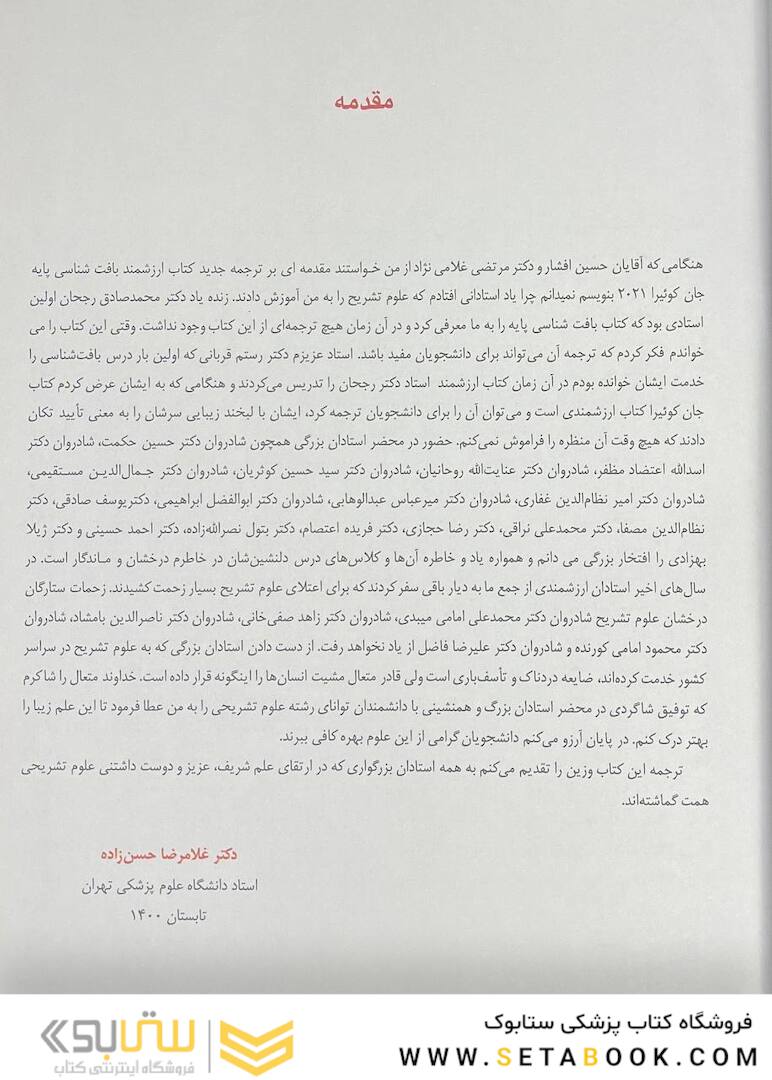 مقدمه
هنگامی که آقایان حسین افشار و دکتر مرتضی غلامی نژاد از من خواستند مقدمه ای بر ترجمه جدید کتاب ارزشمند بافت شناسی پایه
جان کوئیرا ۲۰۲۱ بنویسم نمیدانم چرا یاد استادانی افتادم که علوم تشریح را به من آموزش دادند. زنده یاد دکتر محمدصادق رجحان اولین
استادی بود که کتاب بافت شناسی پایه را به ما معرفی کرد و در آن زمان هیچ ترجمه‌ای از این کتاب وجود نداشت. وقتی این کتاب را می
خواندم فکر کردم که ترجمه آن می‌تواند برای دانشجویان مفید باشد. استاد عزیزم دکتر رستم قربانی که اولین بار درس بافت‌شناسی را
خدمت ایشان خوانده بودم در آن زمان کتاب ارزشمند استاد دکتر رجحان را تدریس می‌کردند و هنگامی که به ایشان عرض کردم کتاب
جان کوئیرا کتاب ارزشمندی است و می‌توان آن را برای دانشجویان ترجمه کرد، ایشان با لبخند زیبایی سرشان را به معنی تأیید تکان
دادند که هیچ وقت آن منظره را فراموش نمی‌کنم. حضور در محضر استادان بزرگی همچون شادروان دکتر حسین حکمت، شادروان دکتر
اسدالله اعتضاد مظفر، شادروان دکتر عنایت‌الله روحانیان، شادروان دکتر سید حسین کوثریان، شادروان دکتر جمال‌الدین مستقیمی،
شادروان دکتر امیر نظام‌الدین غفاری، شادروان دکتر میرعباس عبدالوهابی، شادروان دکتر ابوالفضل ابراهیمی، دکتریوسف صادقی، دکتر
نظام‌الدین مصفا، دکتر محمدعلی نراقی، دکتر رضا حجازی، دکتر فریده اعتصام، دکتر بتول نصرالله‌زاده، دکتر احمد حسینی و دکتر ژیلا
بهزادی را افتخار بزرگی می دانم و همواره یاد و خاطره آن‌ها و کلاس‌های درس دلنشین‌شان در خاطرم درخشان و ماندگار است. در
سال‌های اخیر استادان ارزشمندی از جمع ما به دیار باقی سفر کردند که برای اعتلای علوم تشریح بسیار زحمت کشیدند. زحمات ستارگان
درخشان علوم تشریح شادروان دکتر محمدعلی امامی میبدی، شادروان دکتر زاهد صفی‌خانی، شادروان دکتر ناصرالدین بامشاد، شادروان
دکتر محمود امامی کورنده و شادروان دکتر علیرضا فاضل از یاد نخواهد رفت. از دست دادن استادان بزرگی که به علوم تشریح در سراسر
کشور خدمت کرده‌اند، ضایعه دردناک و تأسف‌باری است ولی قادر متعال مشیت انسان‌ها را اینگونه قرار داده است. خداوند متعال را شاکرم
که توفیق شاگردی در محضر استادان بزرگ و همنشینی با دانشمندان توانای رشته علوم تشریحی را به من عطا فرمود تا این علم زیبا را
بهتر درک کنم. در پایان آرزو می‌کنم دانشجویان گرامی از این علوم بهره کافی ببرند.
ترجمه این کتاب وزین را تقدیم می‌کنم به همه استادان بزرگواری که در ارتقای علم شریف، عزیز و دوست داشتنی علوم تشریحی
همت گماشته‌اند.
دکتر غلامرضا حسن‌زاده
استاد دانشگاه علوم پزشکی تهران
تابستان ۱۴۰۰
فروشگاه کتاب پزشکی ستابوک
WWW.SETABOOK.COM
ستابوک
فروشگاه اینترنتی کتاب